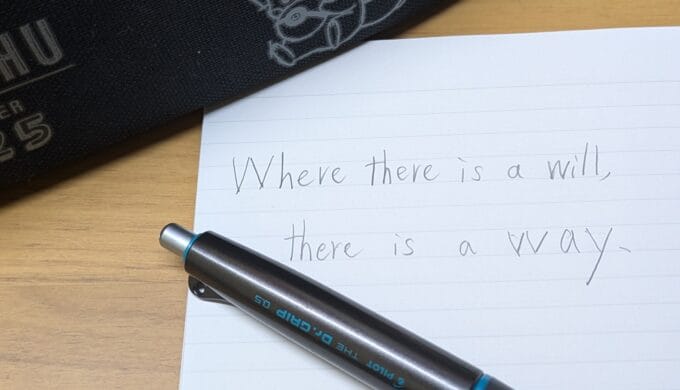 HU
ER
25
Where there is a will,
there is a way.
PILOT THE Dr.GRIP 0.5